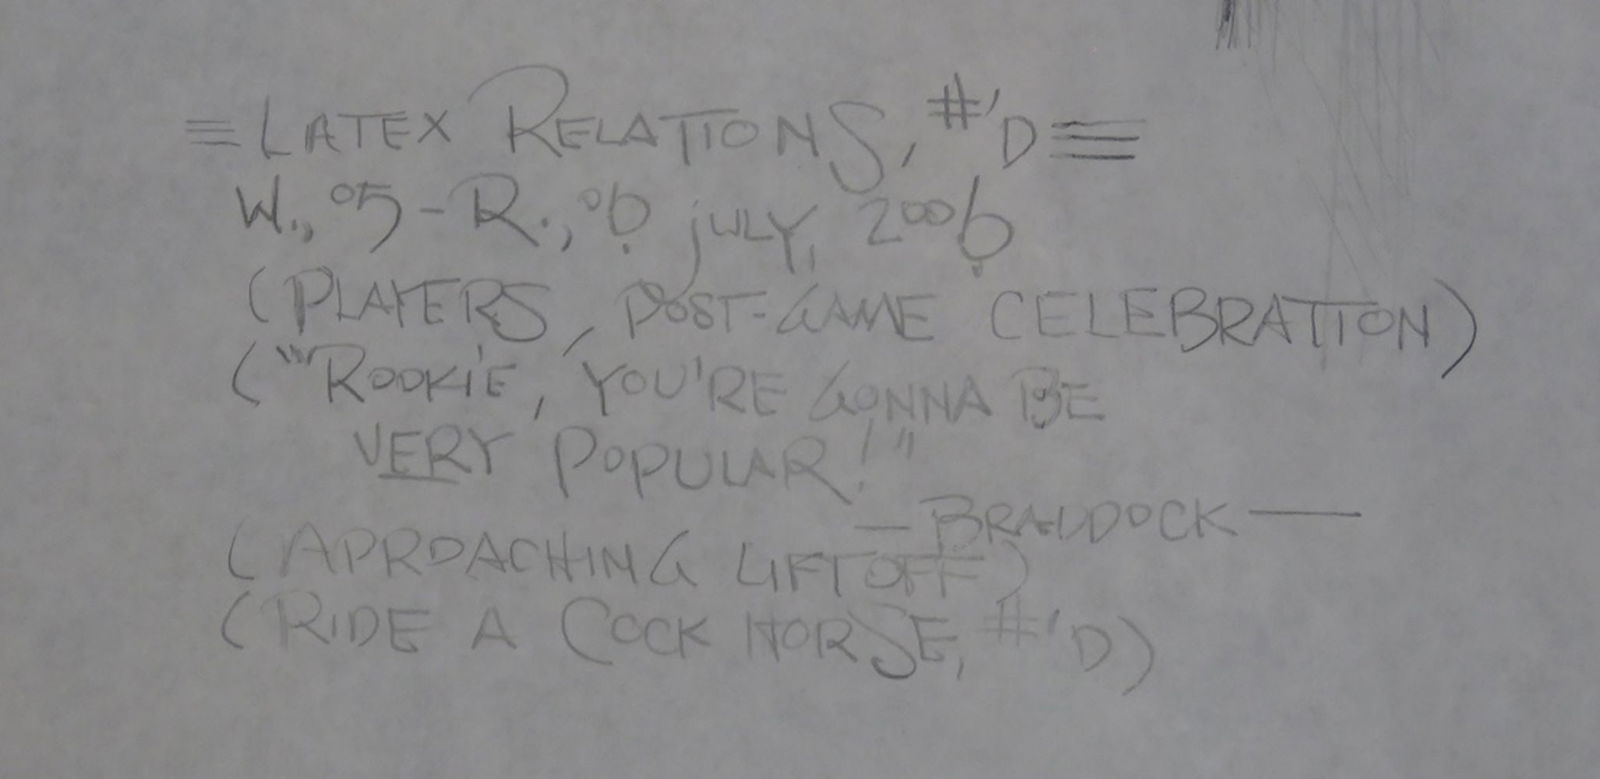 ≡ LATEX RELATIONS, #'D ≡
W., 05 - R., 06 JULY, 2006
(PLAYERS, POST-GAME CELEBRATION)
("'ROOKIE, YOU'RE GONNA BE
VERY POPULAR!"
— BRADDOCK —
(APROACHING LIFTOFF)
(RIDE A COCK HORSE, #'D)